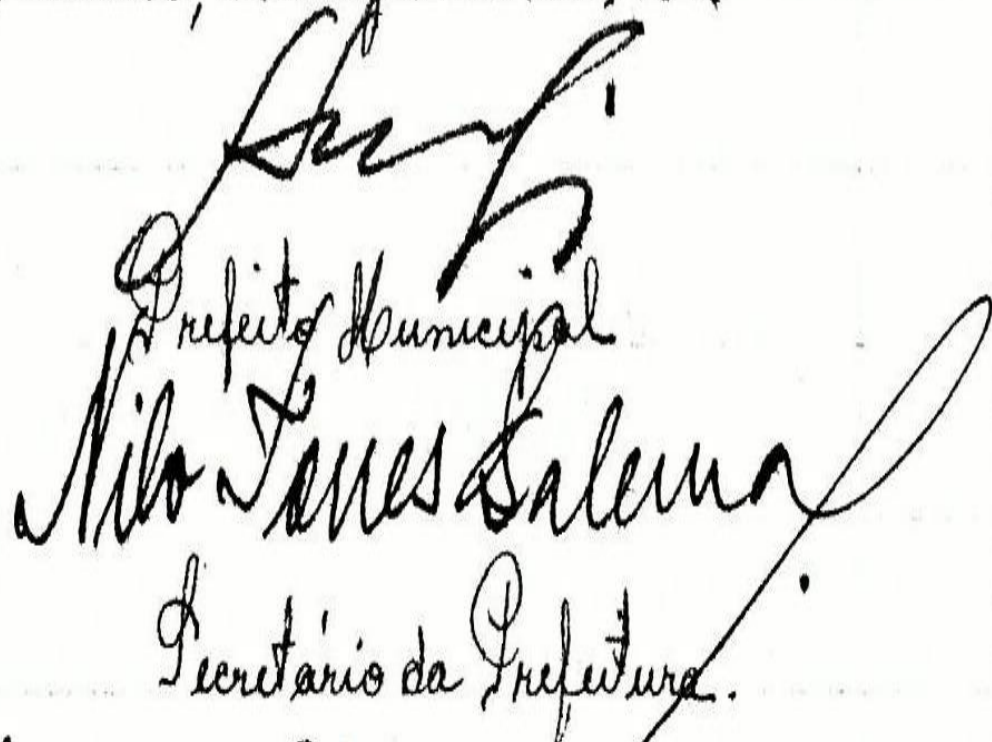 Prefeito Municipal
Nilo Torres Salema
Secretário da Prefeitura.